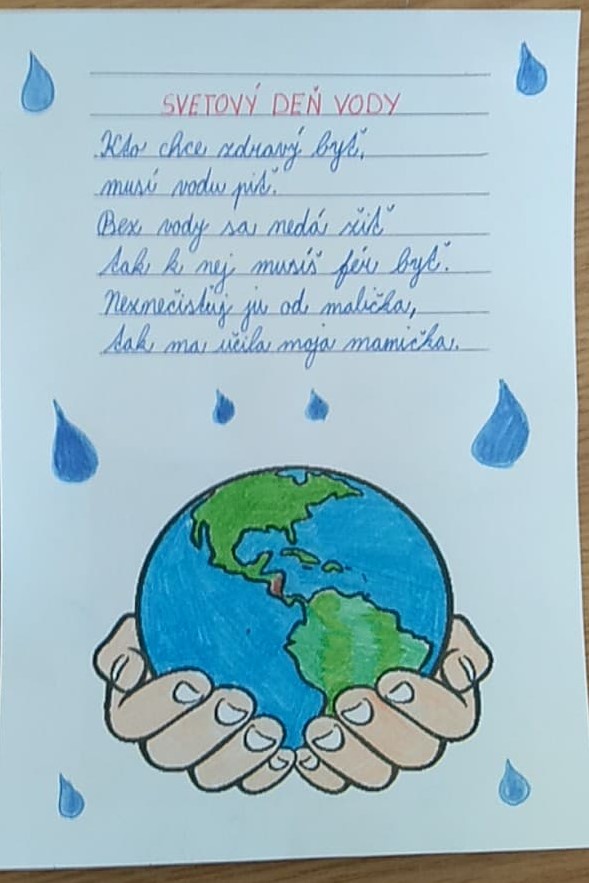 SVETOVÝ DEŇ VODY
Kto chce zdravý byť,
musí vodu piť.
Bez vody sa nedá žiť
tak k nej musíš fér byť.
Neznečistuj ju od malička,
tak ma učila moja mamička.